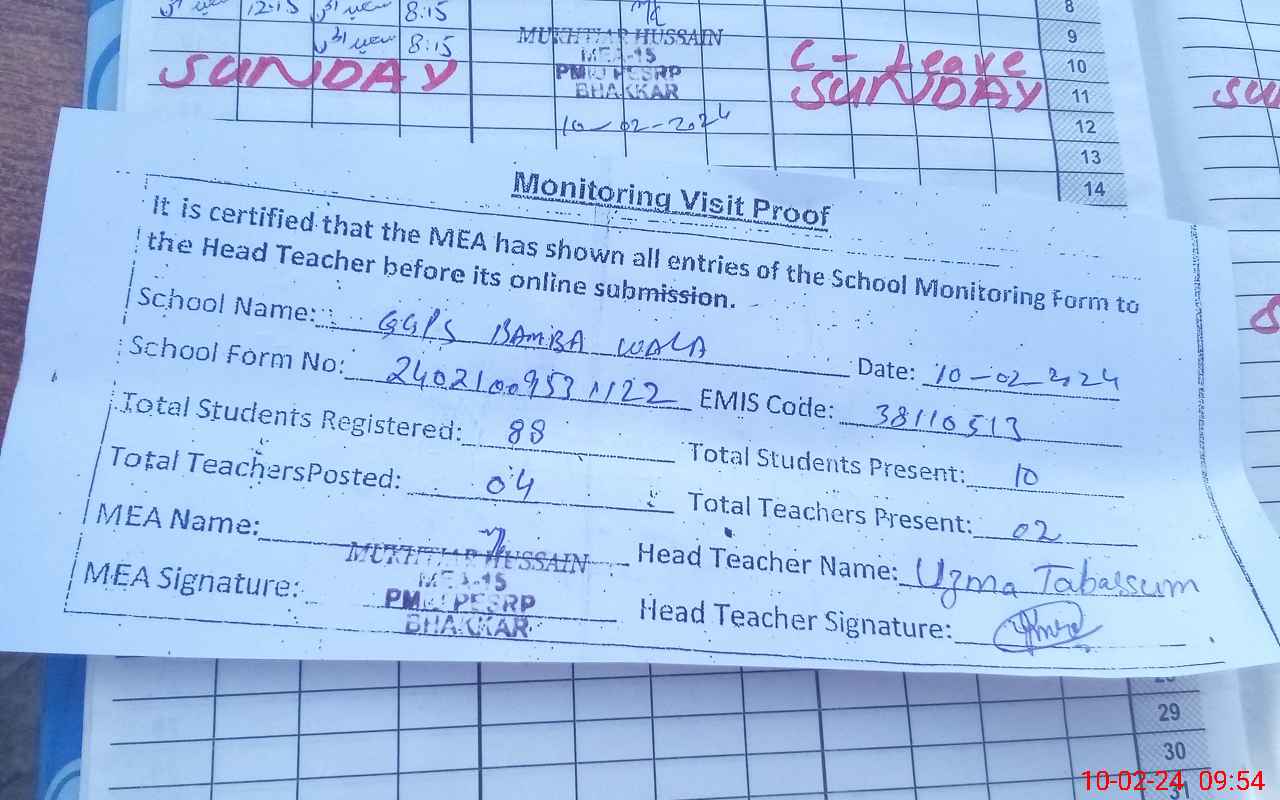 12:15 8:15
8
8:15 MUKHTIAR HUSSAIN 9
SUNDAY MEA-15 C - Leave 10
PMIU PESRP SUNDAY 11
BHAKKAR
10-02-2024 12
13
14
Monitoring Visit Proof
It is certified that the MEA has shown all entries of the School Monitoring Form to
the Head Teacher before its online submission.
School Name: GGPS BAMBA WALA Date: 10-02-2024
School Form No: 24021009531122 EMIS Code: 38110513
Total Students Registered: 88 Total Students Present: 10
Total TeachersPosted: 04 Total Teachers Present: 02
MEA Name: MUKHTIAR HUSSAIN Head Teacher Name: Uzma Tabassum
MEA Signature: MEA-15 Head Teacher Signature:
PMIU PESRP
BHAKKAR
29
30
31
10-02-24 09:54